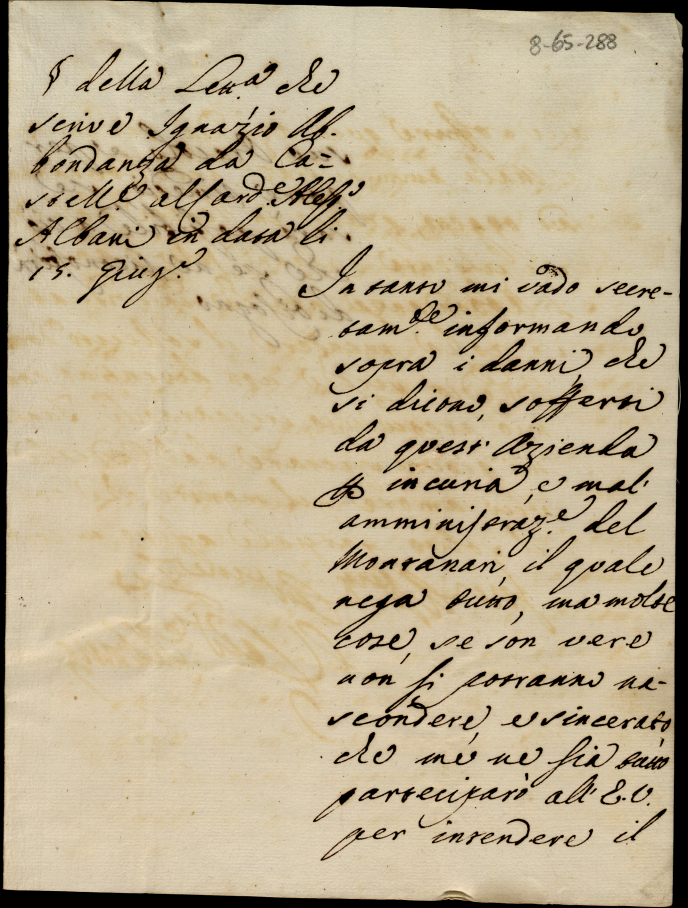 8-65-288
§ della Lett.ª che
scrive Ignazio Ab-
bondanza da Ca-
stell.e al Card.e Aless.o
Albani in data li
15. Giug.o
Intanto mi vado secre-
tam.te informando
sopra i danni, che
si dicono, sofferti
da quest'Azienda
per incuria, e mal'
amministraz.e del
Montanari, il quale
nega tutto, ma molte
cose, se son vere
non si potranno na-
scondere, e sincerato,
che mè ne sia tutto
parteciparò all'E.V.
per intendere il